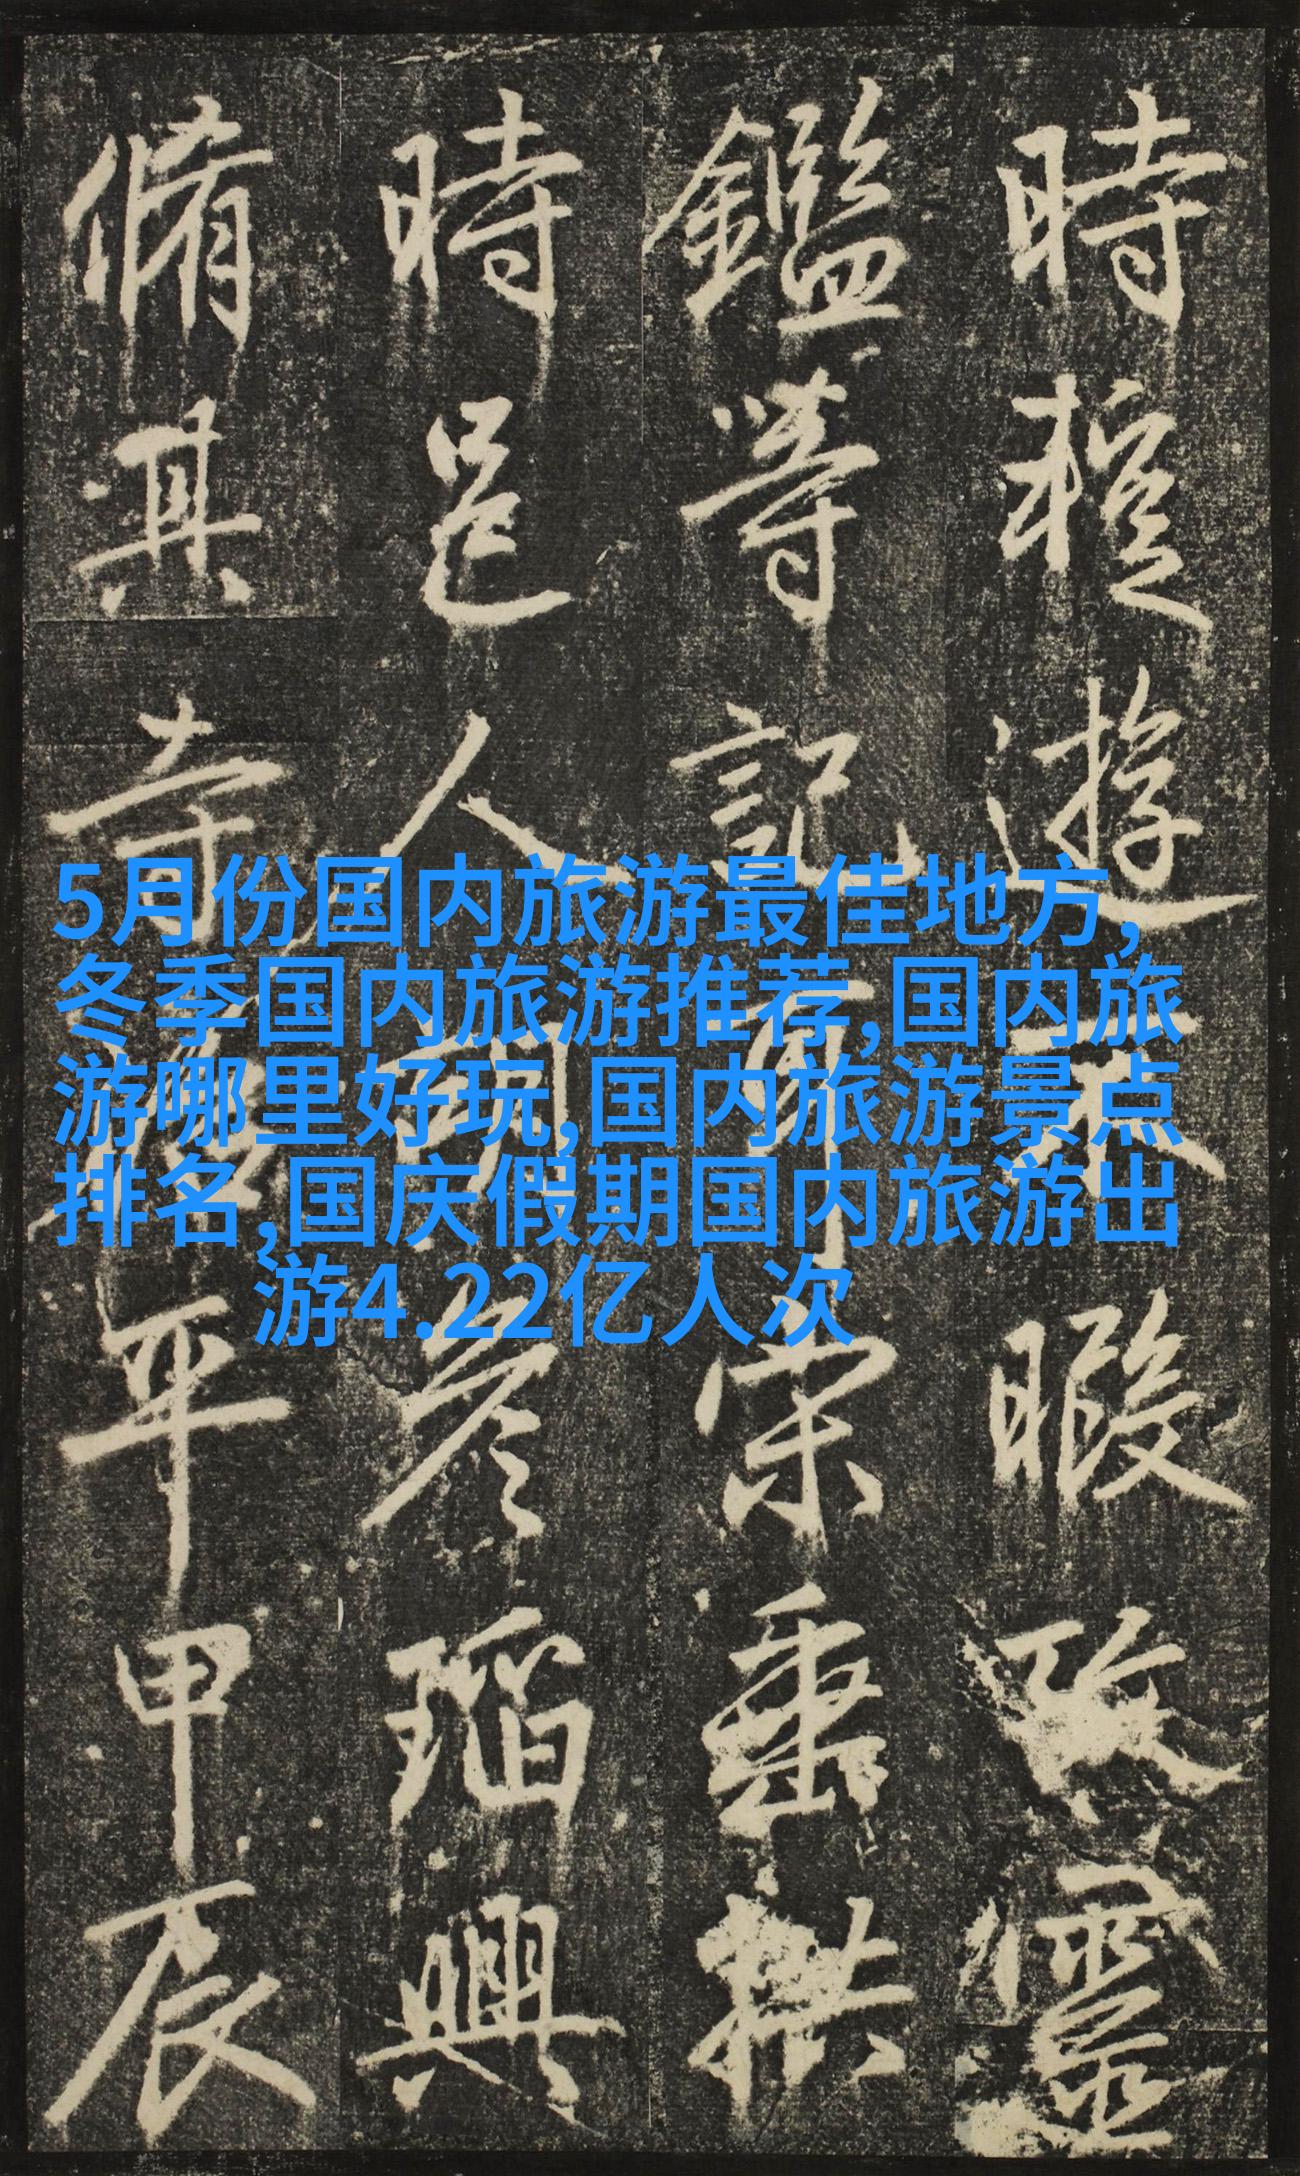 5月份国内旅游最佳地方,
冬季国内旅游推荐,国内旅
游哪里好玩,国内旅游景点
排名,国庆假期国内旅游出
游4.22亿人次
時遊暇
鑑等記宋垂拱
時邑人彥瑫興
脩其寺年甲辰